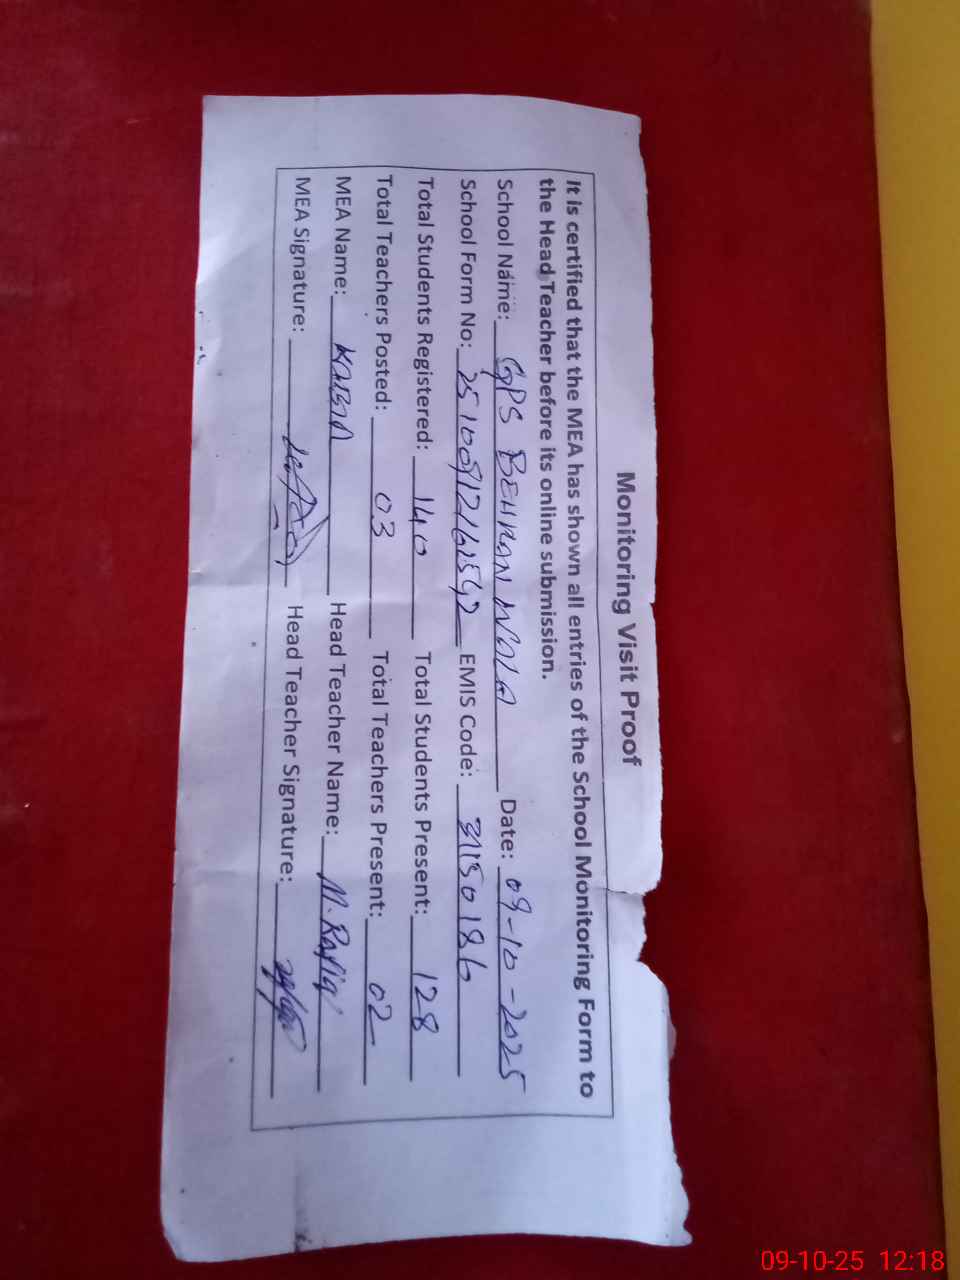 Monitoring Visit Proof
It is certified that the MEA has shown all entries of the School Monitoring Form to
the Head Teacher before its online submission.
School Name: GPS BEHRAN WALA Date: 09-10-2025
School Form No: EMIS Code: 31150186
Total Students Registered: 140 Total Students Present: 128
Total Teachers Posted: 03 Total Teachers Present: 02
MEA Name: Head Teacher Name: M. Rafiq
MEA Signature: Head Teacher Signature:
09-10-25 12:18